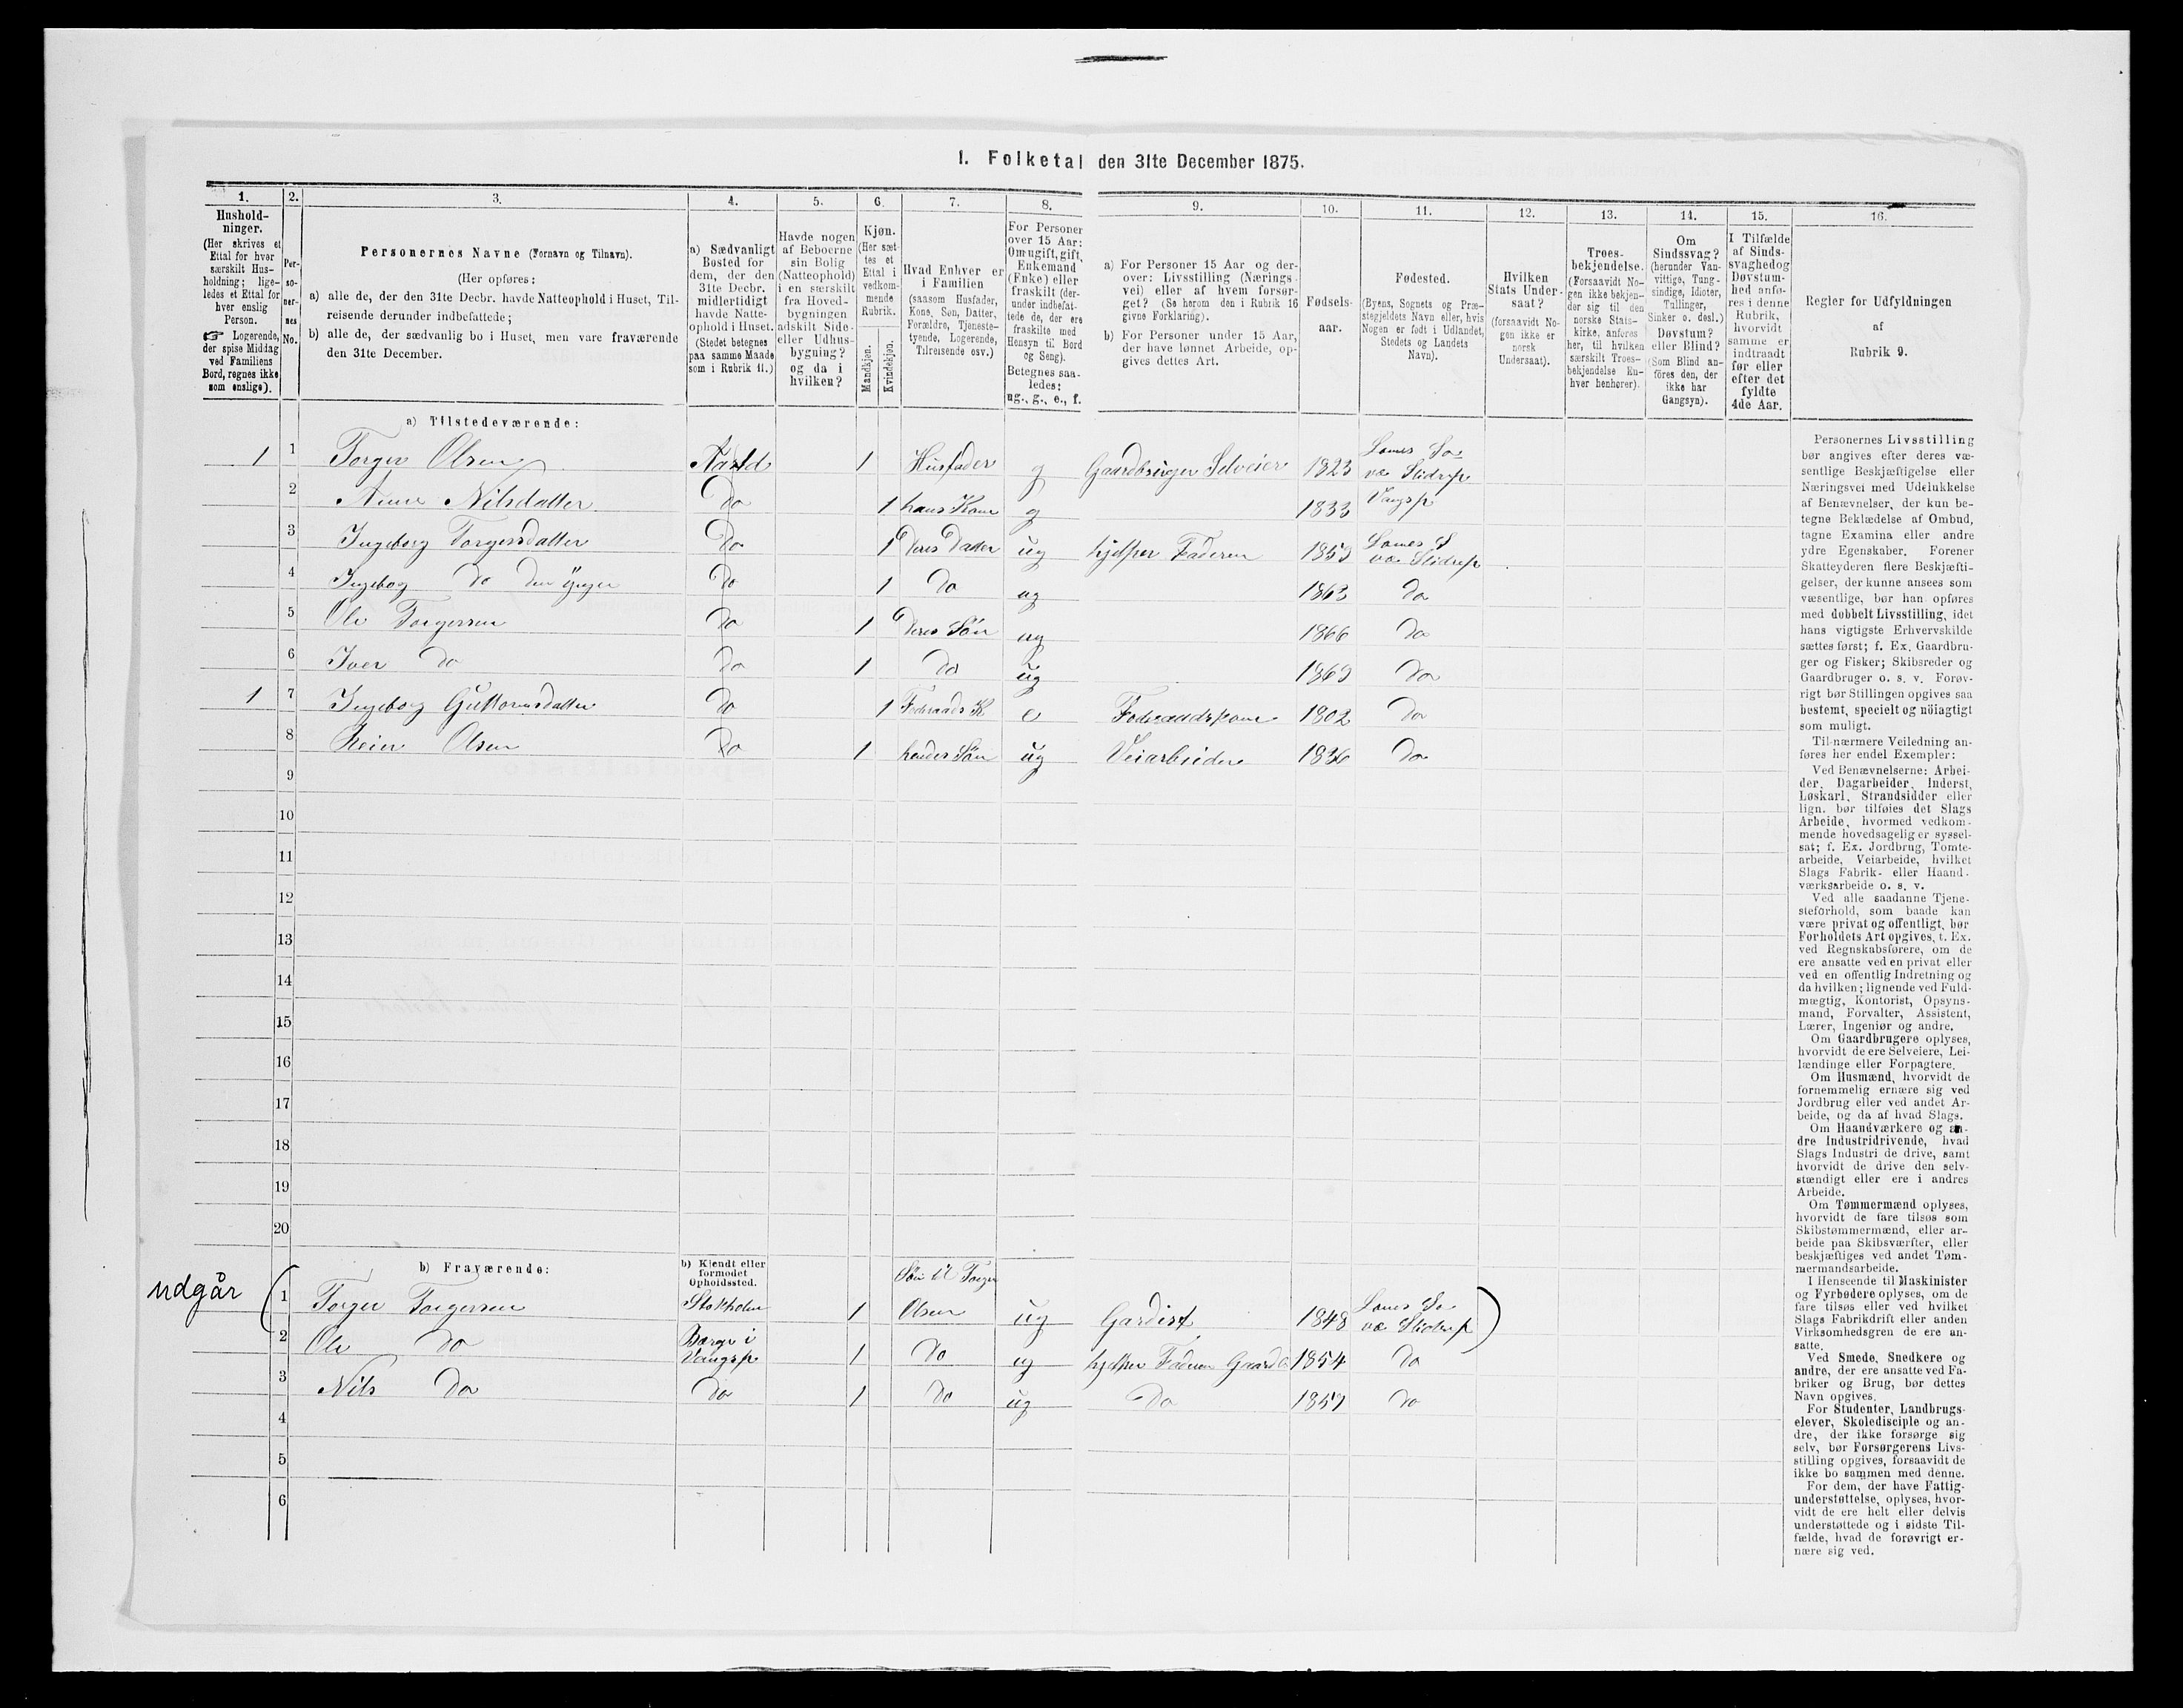 1. Folketal den 31te December 1875.
1.
2.
3.
4.
5.
6.
7.
8.
9.
10.
11.
12.
13.
14.
15.
16.
Hushold-
ninger.
(Her skrives et
Ettal for hver
særskilt Hus-
holdning; lige-
ledes et Ettal for
hver enslig
Person.
☞ Logerende,
der spise Middag
ved Familiens
Bord, regnes ikke
som enslige).
Per-
so-
ner-
nes
No.
Personernes Navne (Fornavn og Tilnavn).
(Her opføres:
a) alle de, der den 31te Decbr. havde Natteophold i Huset, Til-
reisende derunder indbefattede;
b) alle de, der sædvanlig bo i Huset, men vare fraværende
den 31te December.
a) Sædvanligt
Bosted for
dem, der den
31te Decbr.
midlertidigt
havde Natte-
ophold i Huset.
(Stedet betegnes
paa samme Maade
som i Rubrik 11.)
Havde nogen
af Beboerne
sin Bolig
(Natteophold)
i en særskilt
fra Hoved-
bygningen
adskilt Side-
eller Udhus-
bygning?
og da i
hvilken?
Kjøn.
(Her sæt-
tes et
Ettal i
vedkom-
mende
Rubrik.
Mandkjøn.
Kvindekjøn.
Hvad Enhver er
i Familien
(saasom Husfader,
Kone, Søn, Datter,
Forældre, Tjeneste-
tyende, Logerende,
Tilreisende osv.)
For Personer
over 15 Aar:
Om ugift, gift,
Enkemand
(Enke) eller
fraskilt (der-
under indbefat-
tede de, der ere
fraskilte med
Hensyn til Bord
og Seng).
Betegnes saa-
ledes:
ug., g., e., f.
a) For Personer 15 Aar og der-
over: Livsstilling (Nærings-
vei) eller af hvem forsør-
get? (Se herom den i Rubrik 16
givne Forklaring).
b) For Personer under 15 Aar,
der have lønnet Arbeide, op-
gives dettes Art.
Fødsels-
aar.
Fødested.
(Byens, Sognets og Præ-
stegjeldets Navn eller, hvis
Nogen er født i Udlandet,
Stedets og Landets
Navn).
Hvilken
Stats Under-
saat?
(forsaavidt No-
gen ikke er
norsk
Undersaat).
Troes-
bekjendelse.
(Forsaavidt No-
gen ikke bekjen-
der sig til den
norske Stats-
kirke, anføres
her, til hvilken
særskilt Troes-
bekjendelse En-
hver henhører).
Om
Sindssvag?
(herunder Van-
vittige, Tung-
sindige, Idioter,
Tullinger,
Sinker o. desl.)
Døvstum?
eller Blind?
(Som Blind an-
føres den, der
ikke har
Gangsyn).
I Tilfælde
af Sinds-
svaghed og
Døvstum-
hed anfø-
res i denne
Rubrik,
hvorvidt
samme er
indtraadt
før eller
efter det
fyldte
4de Aar.
Regler for Udfyldningen
af
Rubrik 9.
a) Tilstedeværende:
1 1 Torger Olsen 1 Husfader g Gaardbruger Selveier 1823 Lomes So
væ Slidrep
2 Anne Nilsdatter Do 1 hans Kone g 1833 Vangsp
3 Ingeborg Torgersdatter Do 1 Deres Datter ug hjelper Faderen Lomes S
væ Slidrep
4 Ingebog Do den yngre Do 1 Do ug 1863 Do
5 Ole Torgersen Do 1 Deres Søn ug 1866 Do
6 Iver Do Do 1 Do ug 1869 Do
1 7 Ingeborg Guttormsdatter Do 1 Føderaads K e Føderaadskone 1802 Do
8 Olsen Do 1 hendes Søn ug Veiarbeider 1836 Do
9
10
11
12
13
14
15
16
17
18
19
20
b) Fraværende:
b) Kjendt eller
formodet
Opholdssted.
udgår
( 1 Torger Torgersen Stokholm 1 Søn til Torger
Olsen ug Gardist 1848 Lomes So
væ Slidrep )
2 Ole Do i
Vangsp 1 Do ug hjelper Faderen Gaardb 1854 Do
3 Nils Do Do 1 Do ug Do Do
4
5
6
Personernes Livsstilling
bør angives efter deres væ-
sentlige Beskjæftigelse eller
Næringsvei med Udelukkelse
af Benævnelser, der kun be-
tegne Beklædelse af Ombud,
tagne Examina eller andre
ydre Egenskaber. Forener
Skatteyderen flere Beskjæfti-
gelser, der kunne ansees som
væsentlige, bør han opføres
med dobbelt Livsstilling, idet
hans vigtigste Erhvervskilde
sættes først; f. Ex. Gaardbru-
ger og Fisker; Skibsreder og
Gaardbruger o. s. v. Forøv-
rigt bør Stillingen opgives saa
bestemt, specielt og nöiagtigt
som muligt.
Til nærmere Veiledning an-
føres her endel Exempler:
Ved Benævnelserne: Arbei-
der, Dagarbeider, Inderst,
Løskarl, Strandsidder eller
lign. bør tilføies det Slags
Arbeide, hvormed vedkom-
mende hovedsagelig er syssel-
sat; f. Ex. Jordbrug, Tomte-
arbeide, Veiarbeide, hvilket
Slags Fabrik- eller Haand-
værksarbeide o. s. v.
Ved alle saadanne Tjene-
steforhold, som baade kan
være privat og offentligt, bør
Forholdets Art opgives, t. Ex.
ved Regnskabsførere, om de
ere ansatte ved en privat eller
ved en offentlig Indretning og
da hvilken; lignende ved Fuld-
mægtig, Kontorist, Opsyns-
mand, Forvalter, Assistent,
Lærer, Ingeniør og andre.
Om Gaardbrugere oplyses,
hvorvidt de ere Selveiere, Lei-
lændinge eller Forpagtere.
Om Husmænd, hvorvidt de
fornemmelig ernære sig ved
Jordbrug eller ved andet Ar-
beide, og da af hvad Slags.
Om Haandværkere og an-
dre Industridrivende, hvad
Slags Industri de drive, samt
hvorvidt de drive den selv-
stændigt eller ere i andres
Arbeide.
Om Tømmermænd oplyses,
hvorvidt de fare tilsøs som
Skibstømmermænd, eller ar-
beide paa Skibsværfter, eller
beskjæftiges ved andet Tøm-
mermandsarbeide.
I Henseende til Maskinister
og Fyrbødere oplyses, om de
fare tilsøs eller ved hvilket
Slags Fabrikdrift eller anden
Virksomhedsgren de ere an-
satte.
Ved Smede, Snedkere og
andre, der ere ansatte ved Fa-
briker og Brug, bør dettes
Navn opgives.
For Studenter, Landbrugs-
elever, Skoledisciple og an-
dre, der ikke forsørge sig
selv, bør Forsørgerens Livs-
stilling opgives, forsaavidt de
ikke bo sammen med denne.
For dem, der have Fattig-
understøttelse, oplyses, hvor-
vidt de ere helt eller delvis
understøttede og i sidste Til-
fælde, hvad de forøvrigt er-
nære sig ved.